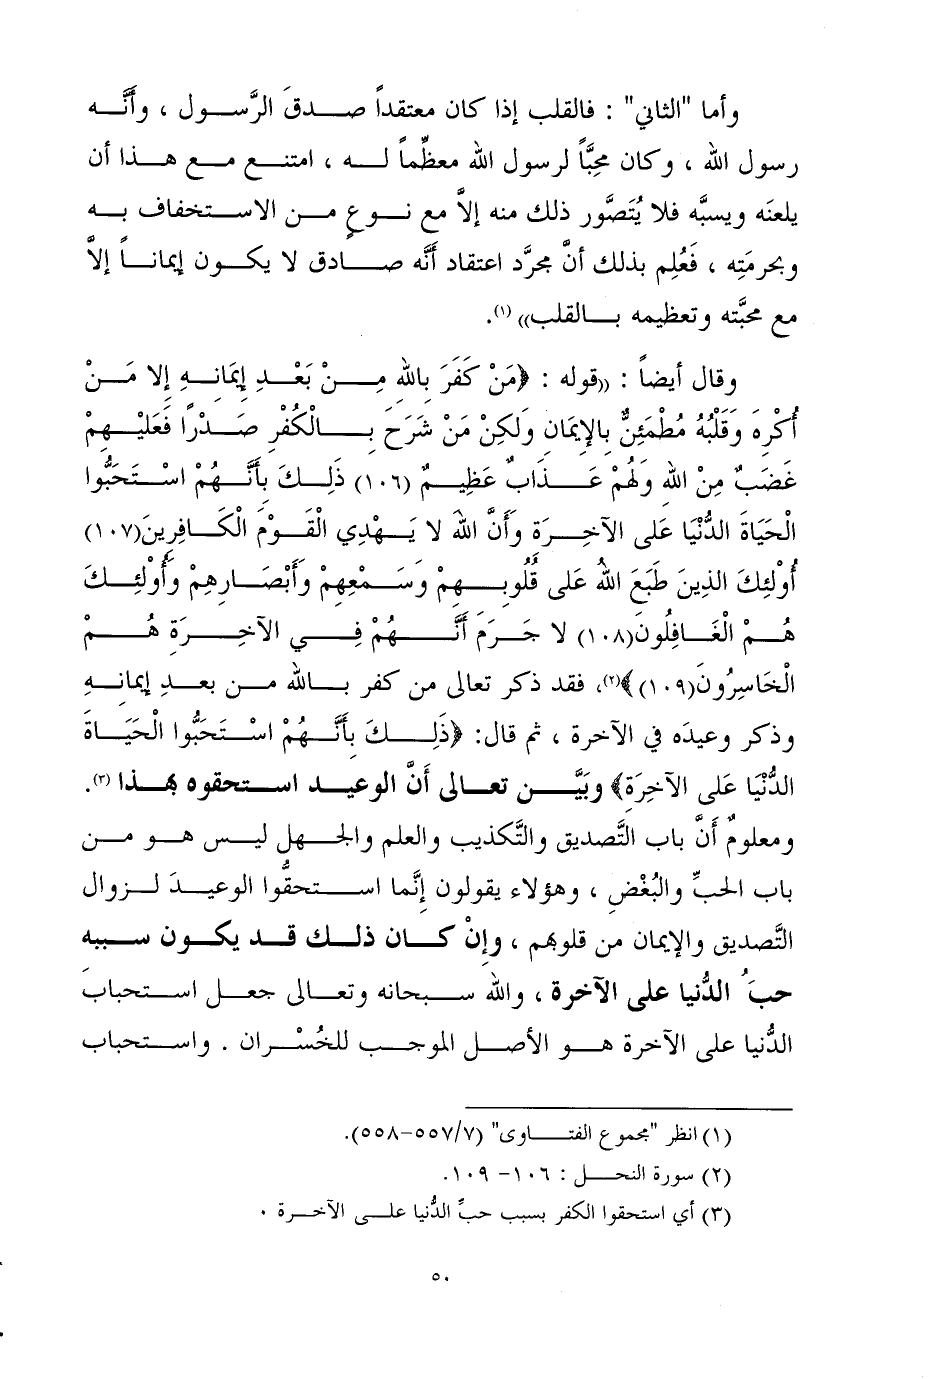 وأما "الثاني" : فالقلب إذا كان معتقداً صدقَ الرَّسول ، وأنَّه
رسول الله ، وكان محبًّا لرسول الله معظّماً له ، امتنع مع هذا أن
يلعنَه ويسبَّه فلا يُتَصَّور ذلك منه إلاَّ مع نوعٍ من الاستخفاف به
وبحرمَتِه ، فَعُلِم بذلك أنَّ مجرَّد اعتقاد أنَّه صادق لا يكون إيماناً إلاَّ
مع محبَّته وتعظيمه بالقلب)) (١).
وقال أيضاً : ((قوله : ﴿مَنْ كَفَرَ بِالله مِنْ بَعْدِ إِيمَانِهِ إلا مَنْ
أُكْرِهَ وَقَلْبُهُ مُطْمَئِنٌّ بِالإِيمَانِ وَلَكِنْ مَنْ شَرَحَ بِالْكُفْرِ صَدْرًا فَعَلَيْهِمْ
غَضَبٌ مِنْ الله وَلَهُمْ عَذَابٌ عَظِيمٌ (١٠٦) ذَلِكَ بِأَنَّهُمْ اسْتَحَبُّوا
الْحَيَاةَ الدُّنْيَا عَلَى الآخِرَةِ وَأَنَّ اللهَ لا يَهْدِي الْقَوْمَ الْكَافِرِينَ(١٠٧)
أُوْلَئِكَ الذِينَ طَبَعَ اللهُ عَلَى قُلُوبِهِمْ وَسَمْعِهِمْ وَأَبْصَارِهِمْ وَأُوْلَئِكَ
هُمْ الْغَافِلُونَ(١٠٨) لا جَرَمَ أَنَّهُمْ فِي الآخِرَةِ هُمْ
الْخَاسِرُونَ(١٠٩)﴾(٢)، فقد ذكر تعالى من كفر بالله من بعدِ إيمانهِ
وذكر وعيدَه في الآخرة ، ثم قال: ﴿ذَلِكَ بِأَنَّهُمْ اسْتَحَبُّوا الْحَيَاةَ
الدُّنْيَا عَلَى الآخِرَةِ﴾ وبَيَّن تعالى أنَّ الوعيد استحقوه بهذا (٣).
ومعلومٌ أنَّ باب التَّصديق والتَّكذيب والعلم والجهل ليس هو من
باب الحبِّ والبُغْض ، وهؤلاء يقولون إنَّما استحقُّوا الوعيدَ لزوال
التَّصديق والإيمان من قلوبِهم ، وإنْ كان ذلك قد يكون سببه
حبَُ الدُّنيا على الآخرة ، والله سبحانه وتعالى جعل استحبابَ
الدُّنيا على الآخرة هو الأصل الموجب للخُسْران . واستحباب
(١) انظر "مجموع الفتاوى" (٧/٥٥٧-٥٥٨).
(٢) سورة النحل : ١٠٦- ١٠٩.
(٣) أي استحقوا الكفر بسبب حبِّ الدُّنيا على الآخرة .
٥٠